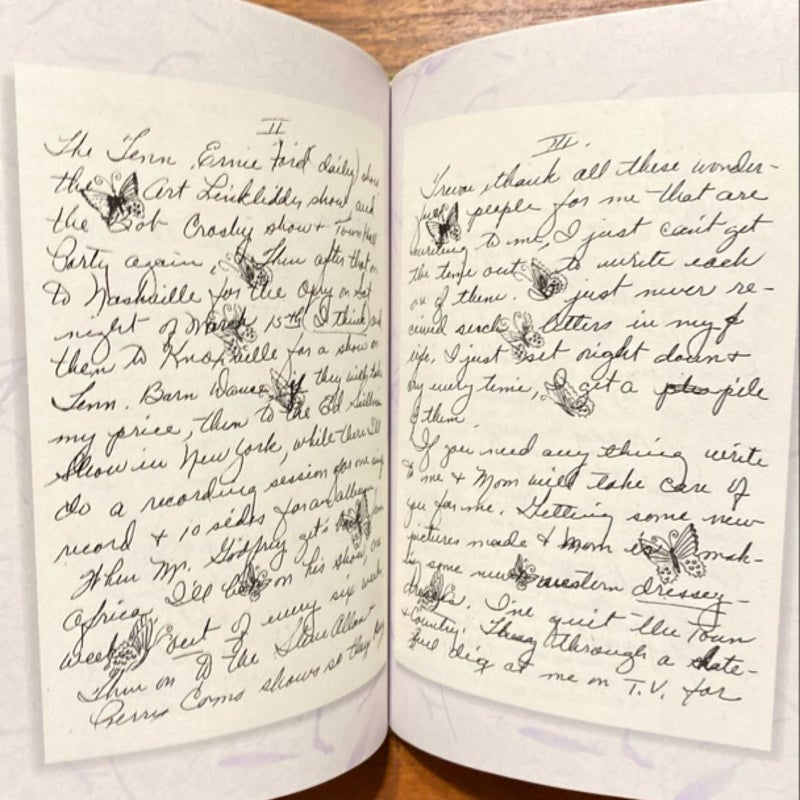 II
The Tenn. Ernie Ford daily show
the Art Linkliddy show and
the Bob Crosby show + Town Hall
Party again, & Then after that on
to Nashville for the Opry on Sat
night of March 15th (I think) and
then to Knoxville for a show on
Tenn. Barn Dance if they will take
my price, then to the Ed Sullivan
Show in New York, while there I'll
do a recording session for one
record + 10 sides for an album,
When Mr. Godfrey get's
Africa I'll be on his show, one
week out of every six weeks,
Then on to the Steve Allen +
Perry Como shows so they
III.
Treva thank all these wonder-
ful people for me that are
writing to me, I just can't get
the time out to write each
one of them. I just never re-
cieved such letters in my
life, I just set right down +
cry every time, I get a pile
of them.
If you need any thing write
to me + Mom will take care of
you for me. Getting some new
pictures made & Mom is mak-
ing some new western dresses
dresses. I've quit the Town
+ Country. They through a state-
ful dig at me on T.V. for